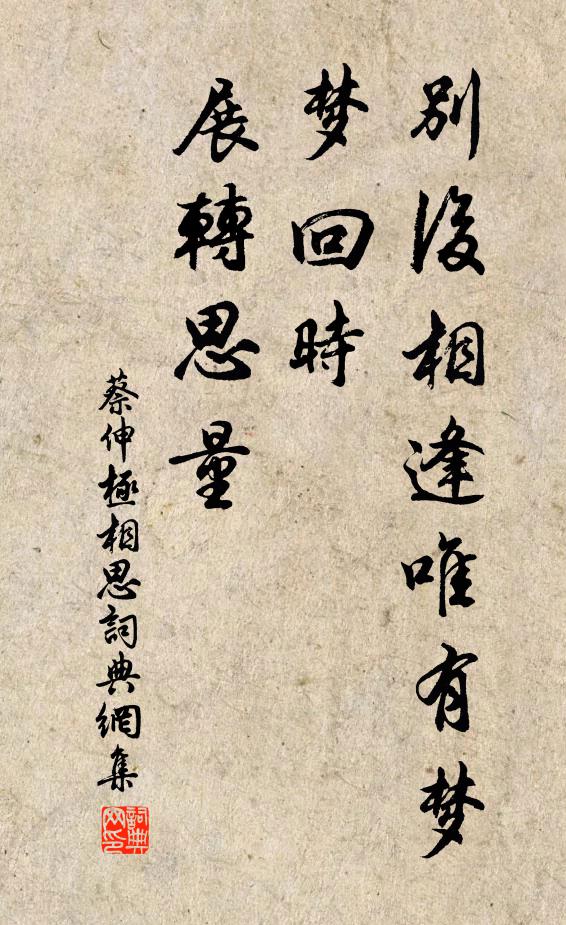 別後相逢唯有梦
梦回時
展轉思量
蔡伸極相思詞典網集
詞典网印